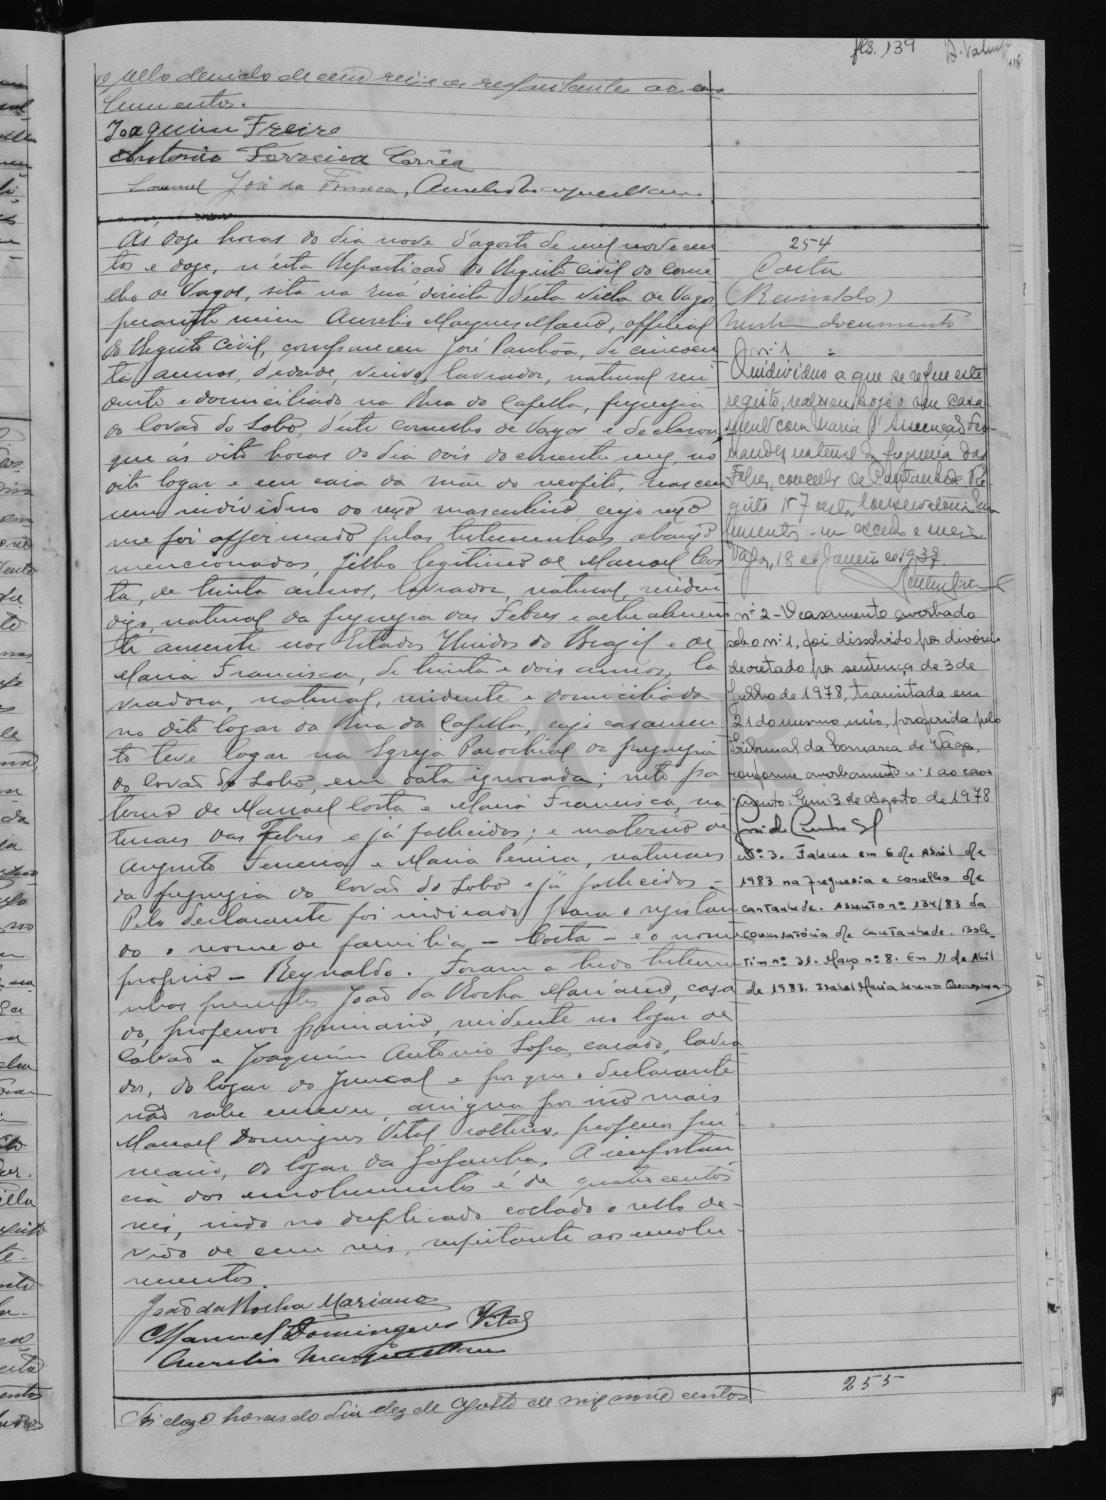 fls. 139
o sello devido de cem reis respeitantes aos emo
lumentos.
Joaquim Freire
Antonio Ferreira Corrêa
Manuel José da Fonseca, Aurelio Marques Mano
Ás doze horas do dia nove d'agosto de mil novecen
tos e doze, n'esta Repartição do Registo civil do conce
lho de Vagos, sita na rua direita d'esta villa de Vagos
perante mim Aurelio Marques Mano, official
do Registo Civil, compareceu José Panhõa, de cincoen
ta annos, d'edade, viuvo, lavrador, natural resi
dente e domiciliado na Rua da Capella, freguezia
do Covão do Lobo, d'este concelho de Vagos e declarou
que ás oito horas do dia dois do corrente mez, no
dito logar e em casa da mãe do neofito, nasceu
um individuo do sexo masculino cujo sexo
me foi affirmado pelas testemunhas abaixo
mencionadas, filho legitimo de Manoel Cos
ta, de trinta annos, lavrador, natural, residen
digo, natural da freguezia das Febres e actualmen
te ausente nos Estados Unidos do Brazil e de
Maria Francisca, de trinta e dois annos, la
vradora, natural, residente e domiciliada
no dito logar da Rua da Capella, cujo casamen
to teve logar na Igreja Parochial da freguezia
do Covão do Lobo, em data ignorada; neto pa
terno de Manoel Costa e Maria Francisca, na
turaes das Febres e já fallecidos; e materno de
Augusto Ferreira e Maria Pereira, naturaes
da freguezia do Covão do Lobo e já fallecidos =
Pelo declarante foi indicado para o registan
do o nome de familia – Costa – e o nome
proprio – Reynaldo. Foram a tudo testemu
nhas presentes João da Rocha Mariano, casa
do, professor primario, residente no logar de
Calvão e Joaquim Antonio Lopes, casado, lavra
dor, do logar do Juncal e por que o declarante
não sabe escrever, assigna por isso mais
Manoel Domingues Vital solteiro, professor pri
mario, do logar da Gafanha. A importan
cia dos emolumentos é de quatrocentos
reis, indo no duplicado collado o sello de-
vido de cem reis, respeitante aos emolu-
mentos.
João da Rocha Mariano
Manuel Domingues Vital
Aurelio Marques Mano
254
Costa
(Reinaldo)
Nenhum documento
Nº 1
O individuo a que se refere este
registo, realizou hoje o seu casa
mento com Maria d'Assunção Fer-
nandes, natural da freguesia das
Febres, concelho de Cantanhede. Re
gisto Nº 7 desta Conservatoria.
Vagos, 18 de Janeiro de 1938.
nº 2 – O casamento averbado
sob o nº 1, foi dissolvido por divórcio
decretado por sentença de 3 de
Julho de 1978, transitada em
21 do mesmo mês, proferida pelo
Tribunal da Comarca de Vagos,
conforme averbamento nº 1 ao casa
mento. Em 3 de Agosto de 1978
Nº 3. Faleceu em 6 de Abril de
1983 na freguesia e concelho de
Cantanhede. Assento nº 134/83 da
Conservatória de Cantanhede. Bole-
tim nº 31. Maço nº 8. Em 11 de Abril
de 1983. Isabel Maria Serano Quaresma
255
Ás doze horas do dia dez de Agosto de mil nove centos